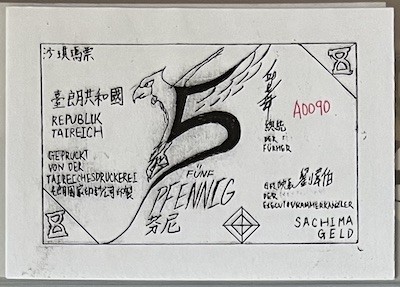 沙琪瑪票
臺朗共和國
REPUBLIK
TAIREICH
GEPRUCKT
VON DER
TAIREICHESDRUCKEREI
5
FÜNF
PFENNIG
芬尼
A0090
總統
DER
FÜRHER
劉
DER
EXECUTIVRAMMERKANZLER
SACHIMA
GELD